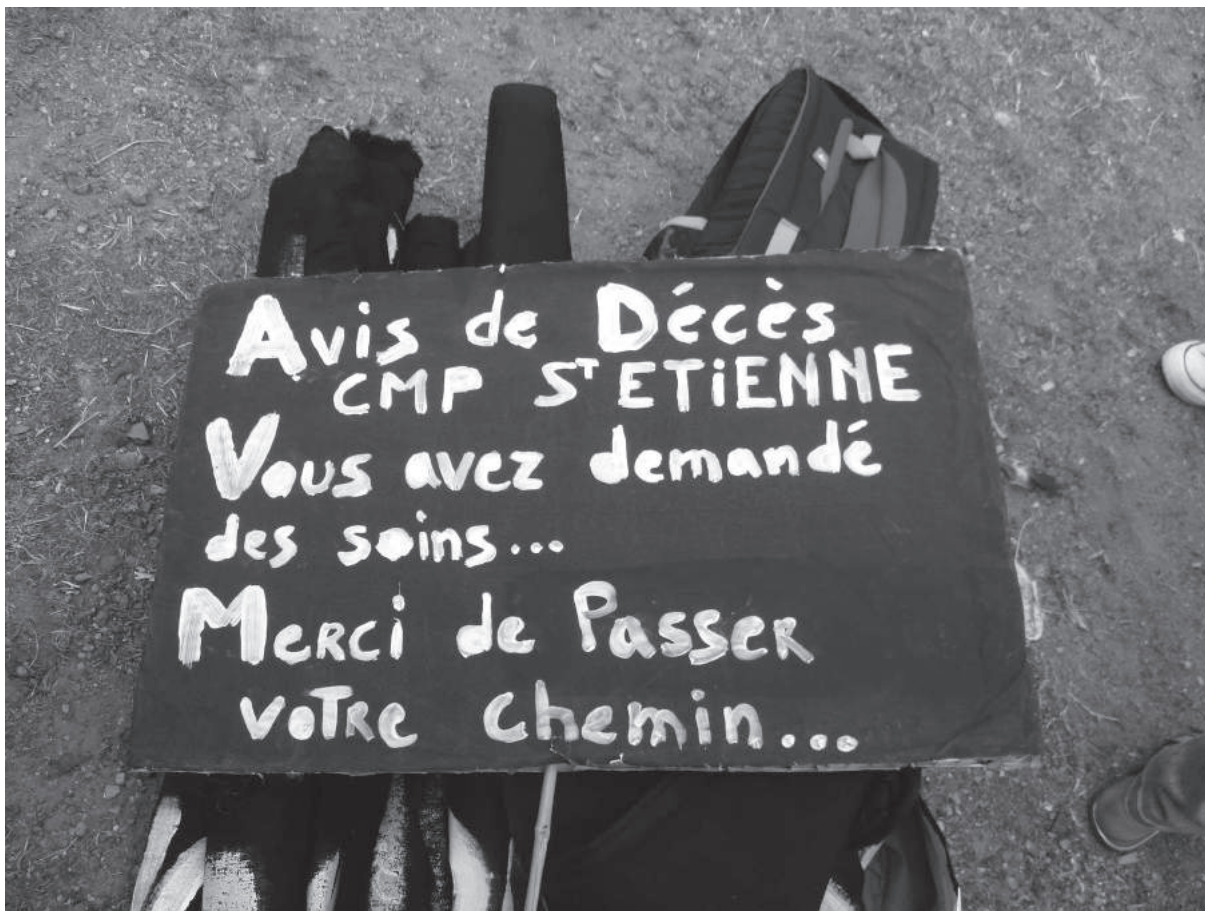 Avis de Décès
CMP ST ETiENNE
Vous avez demandé
des soins...
MERCi de PasseR
voTRe chemin...